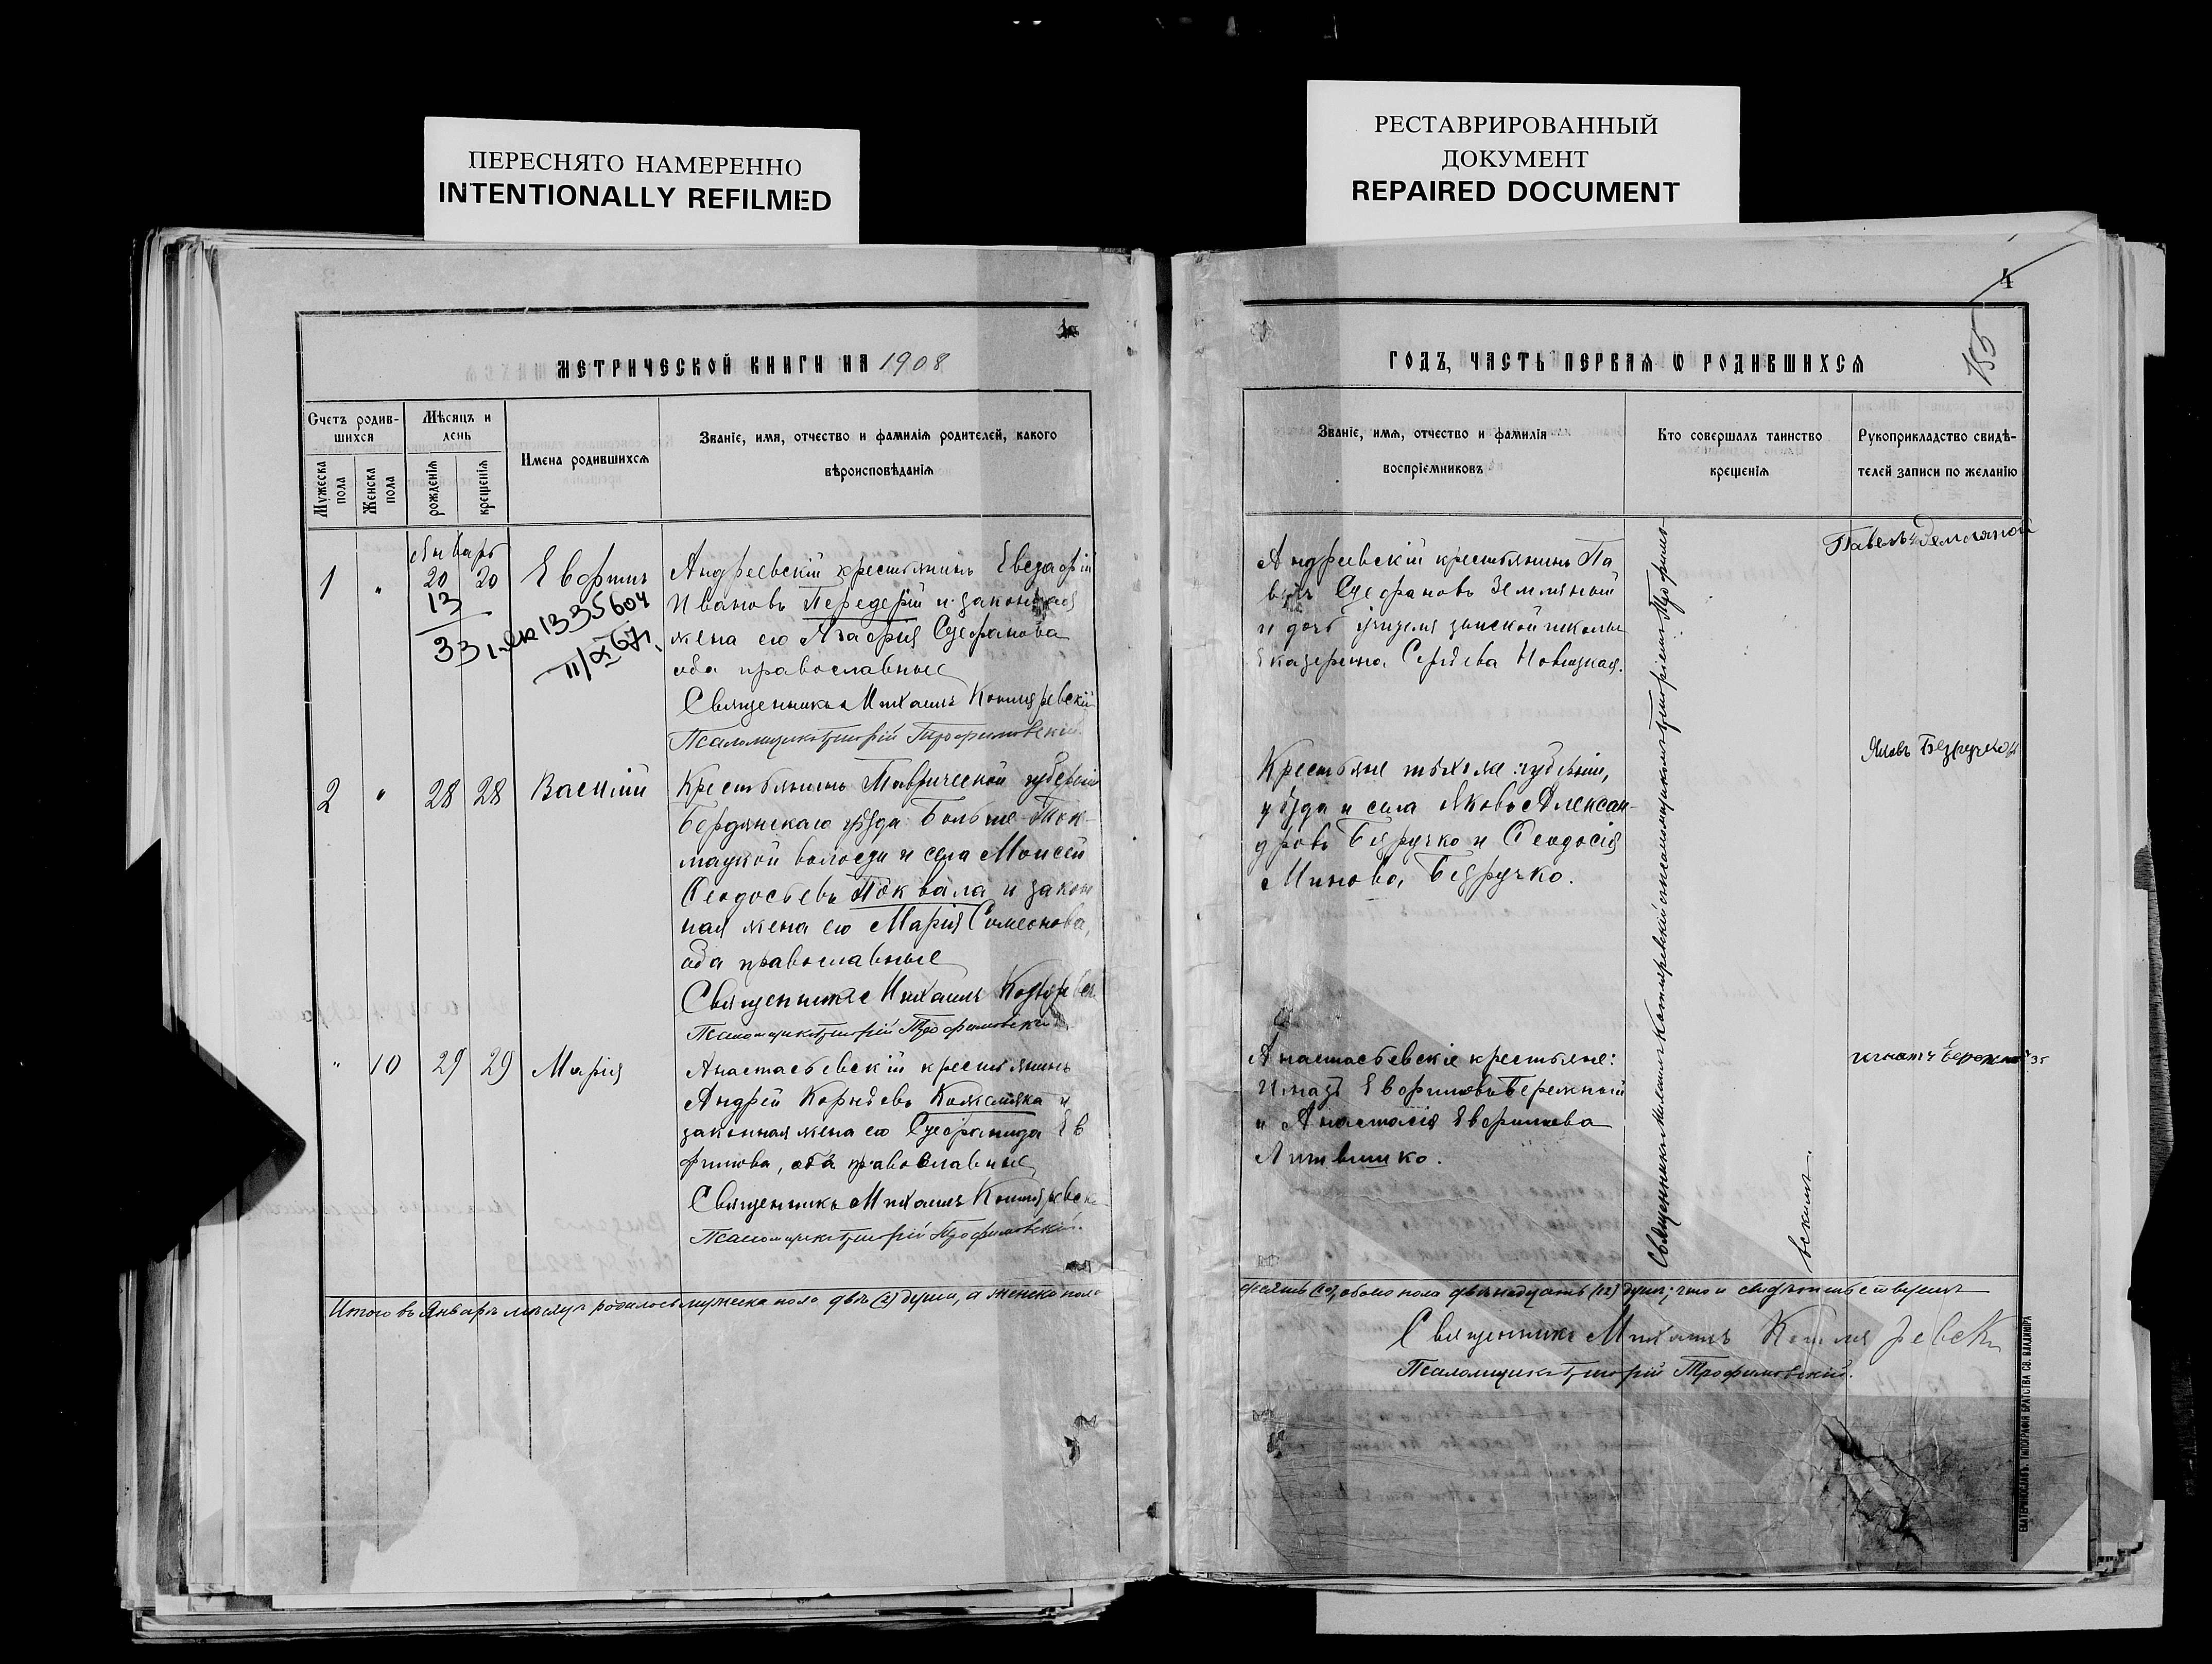 ПЕРЕСНЯТО НАМЕРЕННО
INTENTIONALLY REFILMED
РЕСТАВРИРОВАННЫЙ
ДОКУМЕНТ
REPAIRED DOCUMENT
4
МЕТРИЧЕСКОЙ КНИГИ НА 1908
Счетъ родив-
шихся
Мужеска
пола
Женска
пола
Мѣсяцъ и
день
рожденія
крещенія
Имена родившихся
Званіе, имя, отчество и фамилія родителей, какого
вѣроисповѣданія
Январь
1 " 20 20
13
33
1335604
Андреевскій крестьянинъ
Ивановъ Передерій и законная
жена его Стефанова
оба православные
Священникъ Михаилъ Котляревскій
Псаломщикъ Григорій Трофимовскій
2 " 28 28 Василій
Крестьянинъ Таврической губерніи
Бердянскаго уѣзда Больше-Ток-
мацкой волости и села Моисей
Ѳеодосьевъ Поквала и закон
ная жена его Марія Симеонова,
оба православные
Священникъ Михаилъ
Псаломщикъ Григорій Трофимовскій
" 10 29 29 Марія
Анастасьевскій крестьянинъ
Андрей Корнѣевъ и
законная жена его Стефанида Ев
фимова, оба православные
Священникъ Михаилъ Котляревск
Псаломщикъ Григорій Трофимовскій.
Итого въ Январѣ мѣсяцѣ родилось мужеска пола двѣ (2) души, а женска пола
ГОДЪ, ЧАСТЬ ПЕРВАЯ Ѡ РОДИВШИХСЯ
Званіе, имя, отчество и фамилія
воспріемниковъ
Кто совершалъ таинство
крещенія
Рукоприкладство свидѣ-
телей записи по желанію
Андреевскій крестьянинъ Па
велъ Стефановъ Земляной
и дочь учителя земской школы
Екатерина Сергѣева Новицкая.
Павелъ Земляной
Крестьяне тѣхъ же губерніи,
уѣзда и села Яковъ Алексан-
дровъ Безручко и Ѳеодосія
Минова Безручко.
Яковъ Безручко
Анастасьевскіе крестьяне:
Игнатъ Евфимовъ Бережной
и Анастасія Евфимова
Литвинко.
Игнатъ Бережной
Священникъ Михаилъ Котляревскій съ псаломщикомъ Григоріемъ Трофимо-
вскимъ.
десять (10), обоего пола двѣнадцать (12) душъ; что и свидѣтельствуемъ
Священникъ Михаилъ Котляревскій
Псаломщикъ Григорій Трофимовскій.
ЕКАТЕРИНОСЛАВЪ. ТИПОГРАФІЯ БРАТСТВА СВ. ВЛАДИМІРА